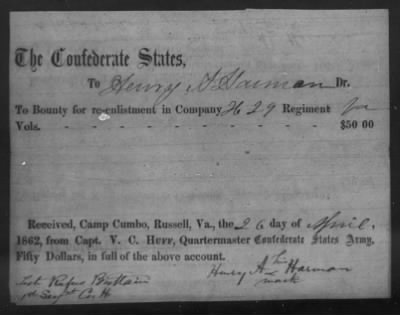 The Confederate States,
To Henry A Harman Dr.
To Bounty for re-enlistment in Company H 29 Regiment Va
Vols. - - - - - - - - $50 00
Received, Camp Cumbo, Russell, Va., the 26 day of April,
1862, from Capt. V. C. Huff, Quartermaster Confederate States Army,
Fifty Dollars, in full of the above account.
Henry A his Harman
mark
Test Rufus Brittain
1st Sergt Co. H